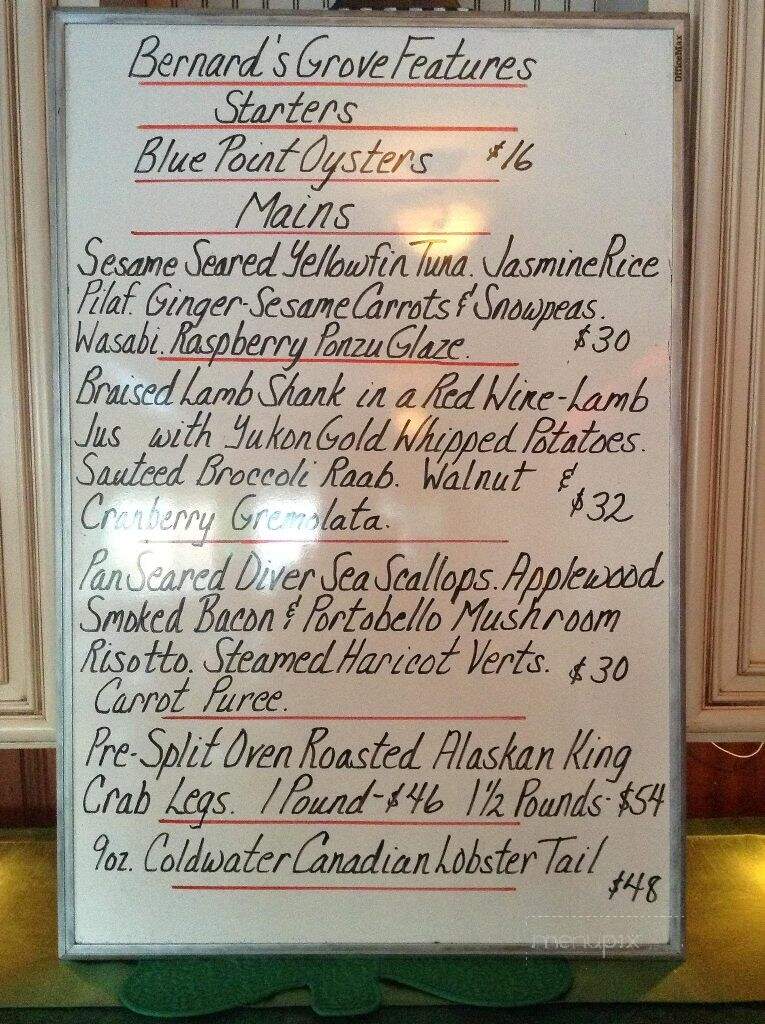 OfficeMax
Bernard's Grove Features
Starters
Blue Point Oysters $16
Mains
Sesame Seared Yellowfin Tuna. Jasmine Rice
Pilaf. Ginger-Sesame Carrots & Snowpeas.
Wasabi. Raspberry Ponzu Glaze. $30
Braised Lamb Shank in a Red Wine-Lamb
Jus with Yukon Gold Whipped Potatoes.
Sauteed Broccoli Raab. Walnut &
Cranberry Gremolata. $32
Pan Seared Diver Sea Scallops. Applewood
Smoked Bacon & Portobello Mushroom
Risotto. Steamed Haricot Verts. $30
Carrot Puree.
Pre-Split Oven Roasted Alaskan King
Crab Legs. 1 Pound-$46 1 1/2 Pounds-$54
9oz. Coldwater Canadian Lobster Tail
$48
menupix